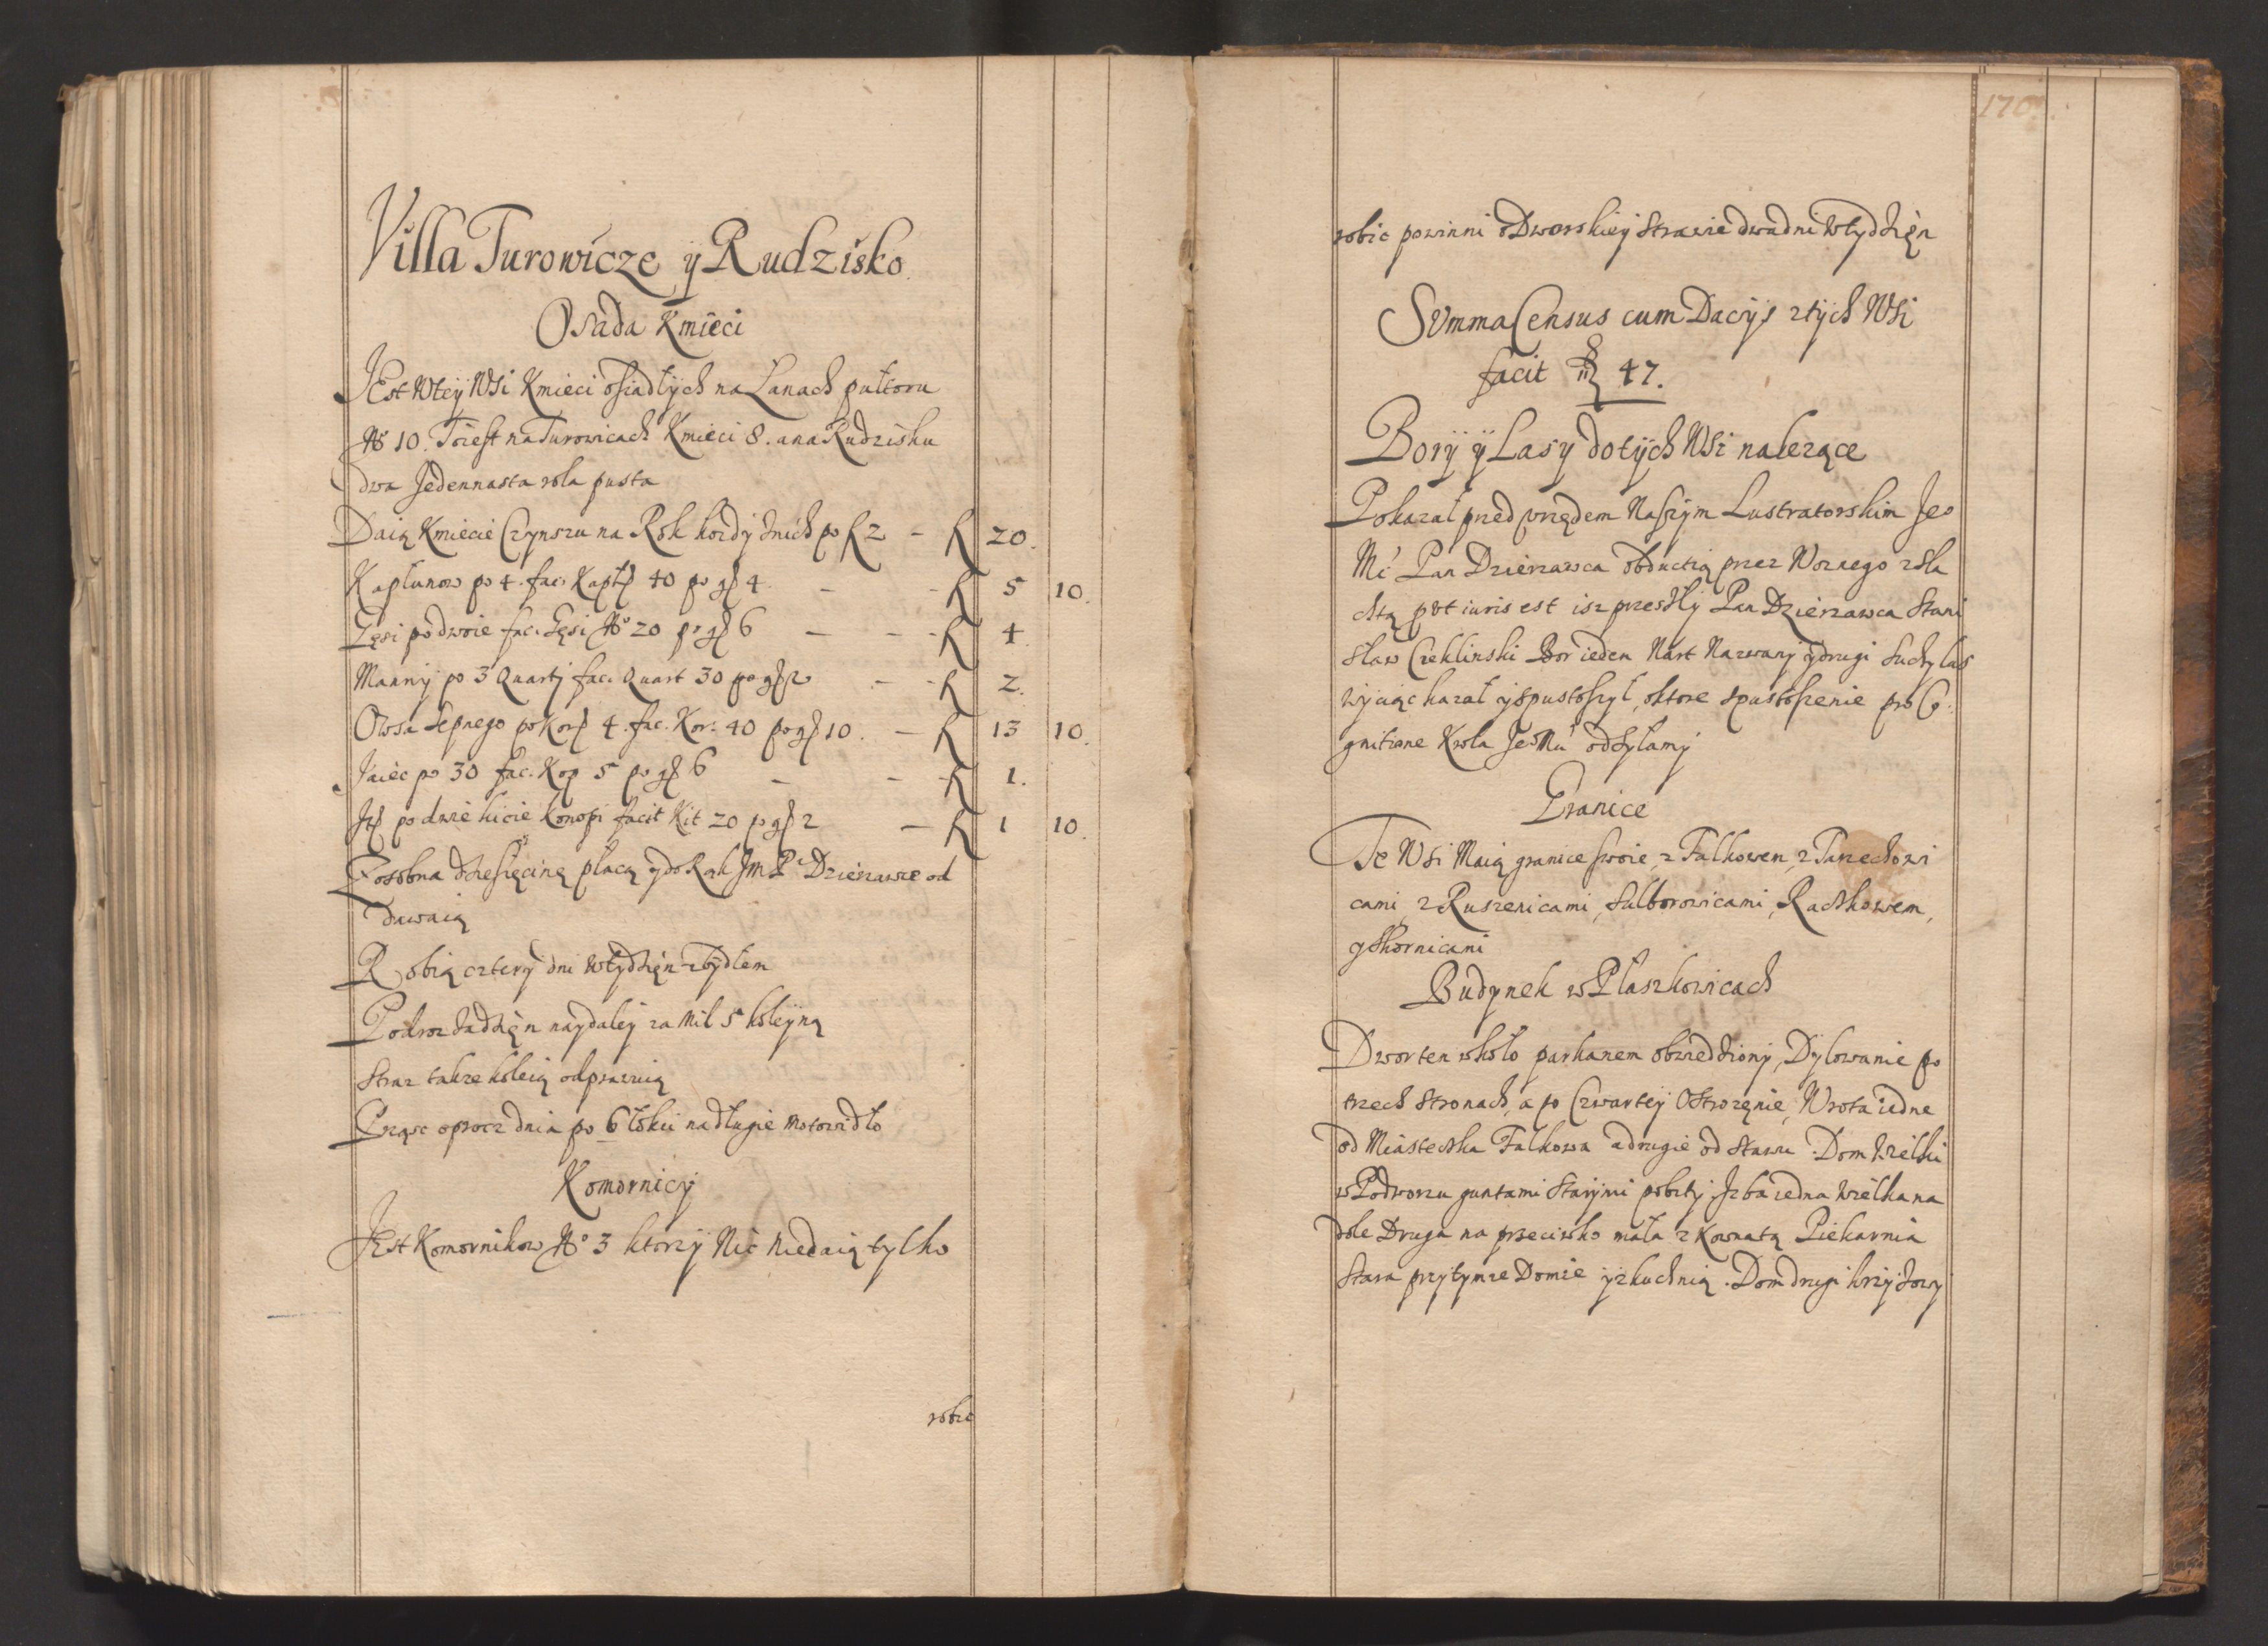 Villa Turowicze ÿ Rudzisko.
Osada Kmieci
JEst Wteÿ WSi Kmieci osiadłÿch na Łanach pułtoru
No 10. Toiest na Turowicach Kmieci 8. a na Rudzisku
dwa Jedennasta rola pusta
Daią Kmiecie Czynszu na Rok kozdÿ znich po f 2 – f 20.
Kapłunow po 4. fac. Kapł 40 po gr 4. – – f 5 10.
Gęsi po dwoie fac. Gęsi No 20 po gr 6 – – – f 4.
Mannÿ po 3 Quartÿ fac. Quart 30 po gr 2 – – f 2.
Owsa Sepnego po Kor 4. fac. Kor. 40 po gr 10. – f 13 10.
Jaiec po 30 fac. Kop 5 po gr 6 – – – f 1.
po dwie kicie konopi facit Kit 20 po gr 2 – f 1 10.
Zosobna dziesięcinę płacą ÿ do Rąk Jm Pa Dzierzawce od
dawaią
Robią czterÿ dni wtÿdzięn zbÿdłem
Podroz dadzięn naÿdaleÿ za Mil 5 koleÿną
Straz takze koleią odprawuią
Prząsc oprocz dnia po 6 łokci na długie motowidło
Komornicÿ
JEst Komornikow No 3 ktorzÿ Nic niedaią tylko
robic
170.
robic powinni o Dworskieÿ Strawie dwa dni wtydzięn
SVmma Census cum Dacÿs ztÿch WSi
facit f 47.
Borÿ ÿ Lasy do tÿch WSi nalezące
Pokazał przed vrzędem Naszym Lustratorskim Jeo
Mć Pan Dzierzawca obductią przez Woznego zsla
chtą prt iuris est isz przeszłÿ Pan Dzierzawca Stani
sław Czeklinski Bor ieden Nart Nazwanÿ ÿ drugi Suchÿ las
wÿciąc kazał ÿ spustoszył, oktore spustoszenie pro Co
gnitione Krola Jeo Mci odsyłamÿ
Granice
Te WSi Maią granice swoie, z Falkowem, z Parzechowi
cami, z Ruszenicami, Sulborowicami, Raczkowem,
ÿ Skornicami
Budynek w Płaszkowicach
Dwor ten wkoło parkanem obwiedzionÿ, Dÿlowanie po
trzech Stronach, a po Czwarteÿ Ostrozęnie, Wrota iedne
od Miasteczka Falkowa a drugie od Stawu. Dom Wielki
w Podworzu guntami Starÿmi pobitÿ, Jzba iedna Wielka na
dole Druga na przeciwko mała z Kownatą Piekarnia
Stara przÿ tÿmze Domie ÿ z kuchnią. Dom drugi krzÿzowÿ